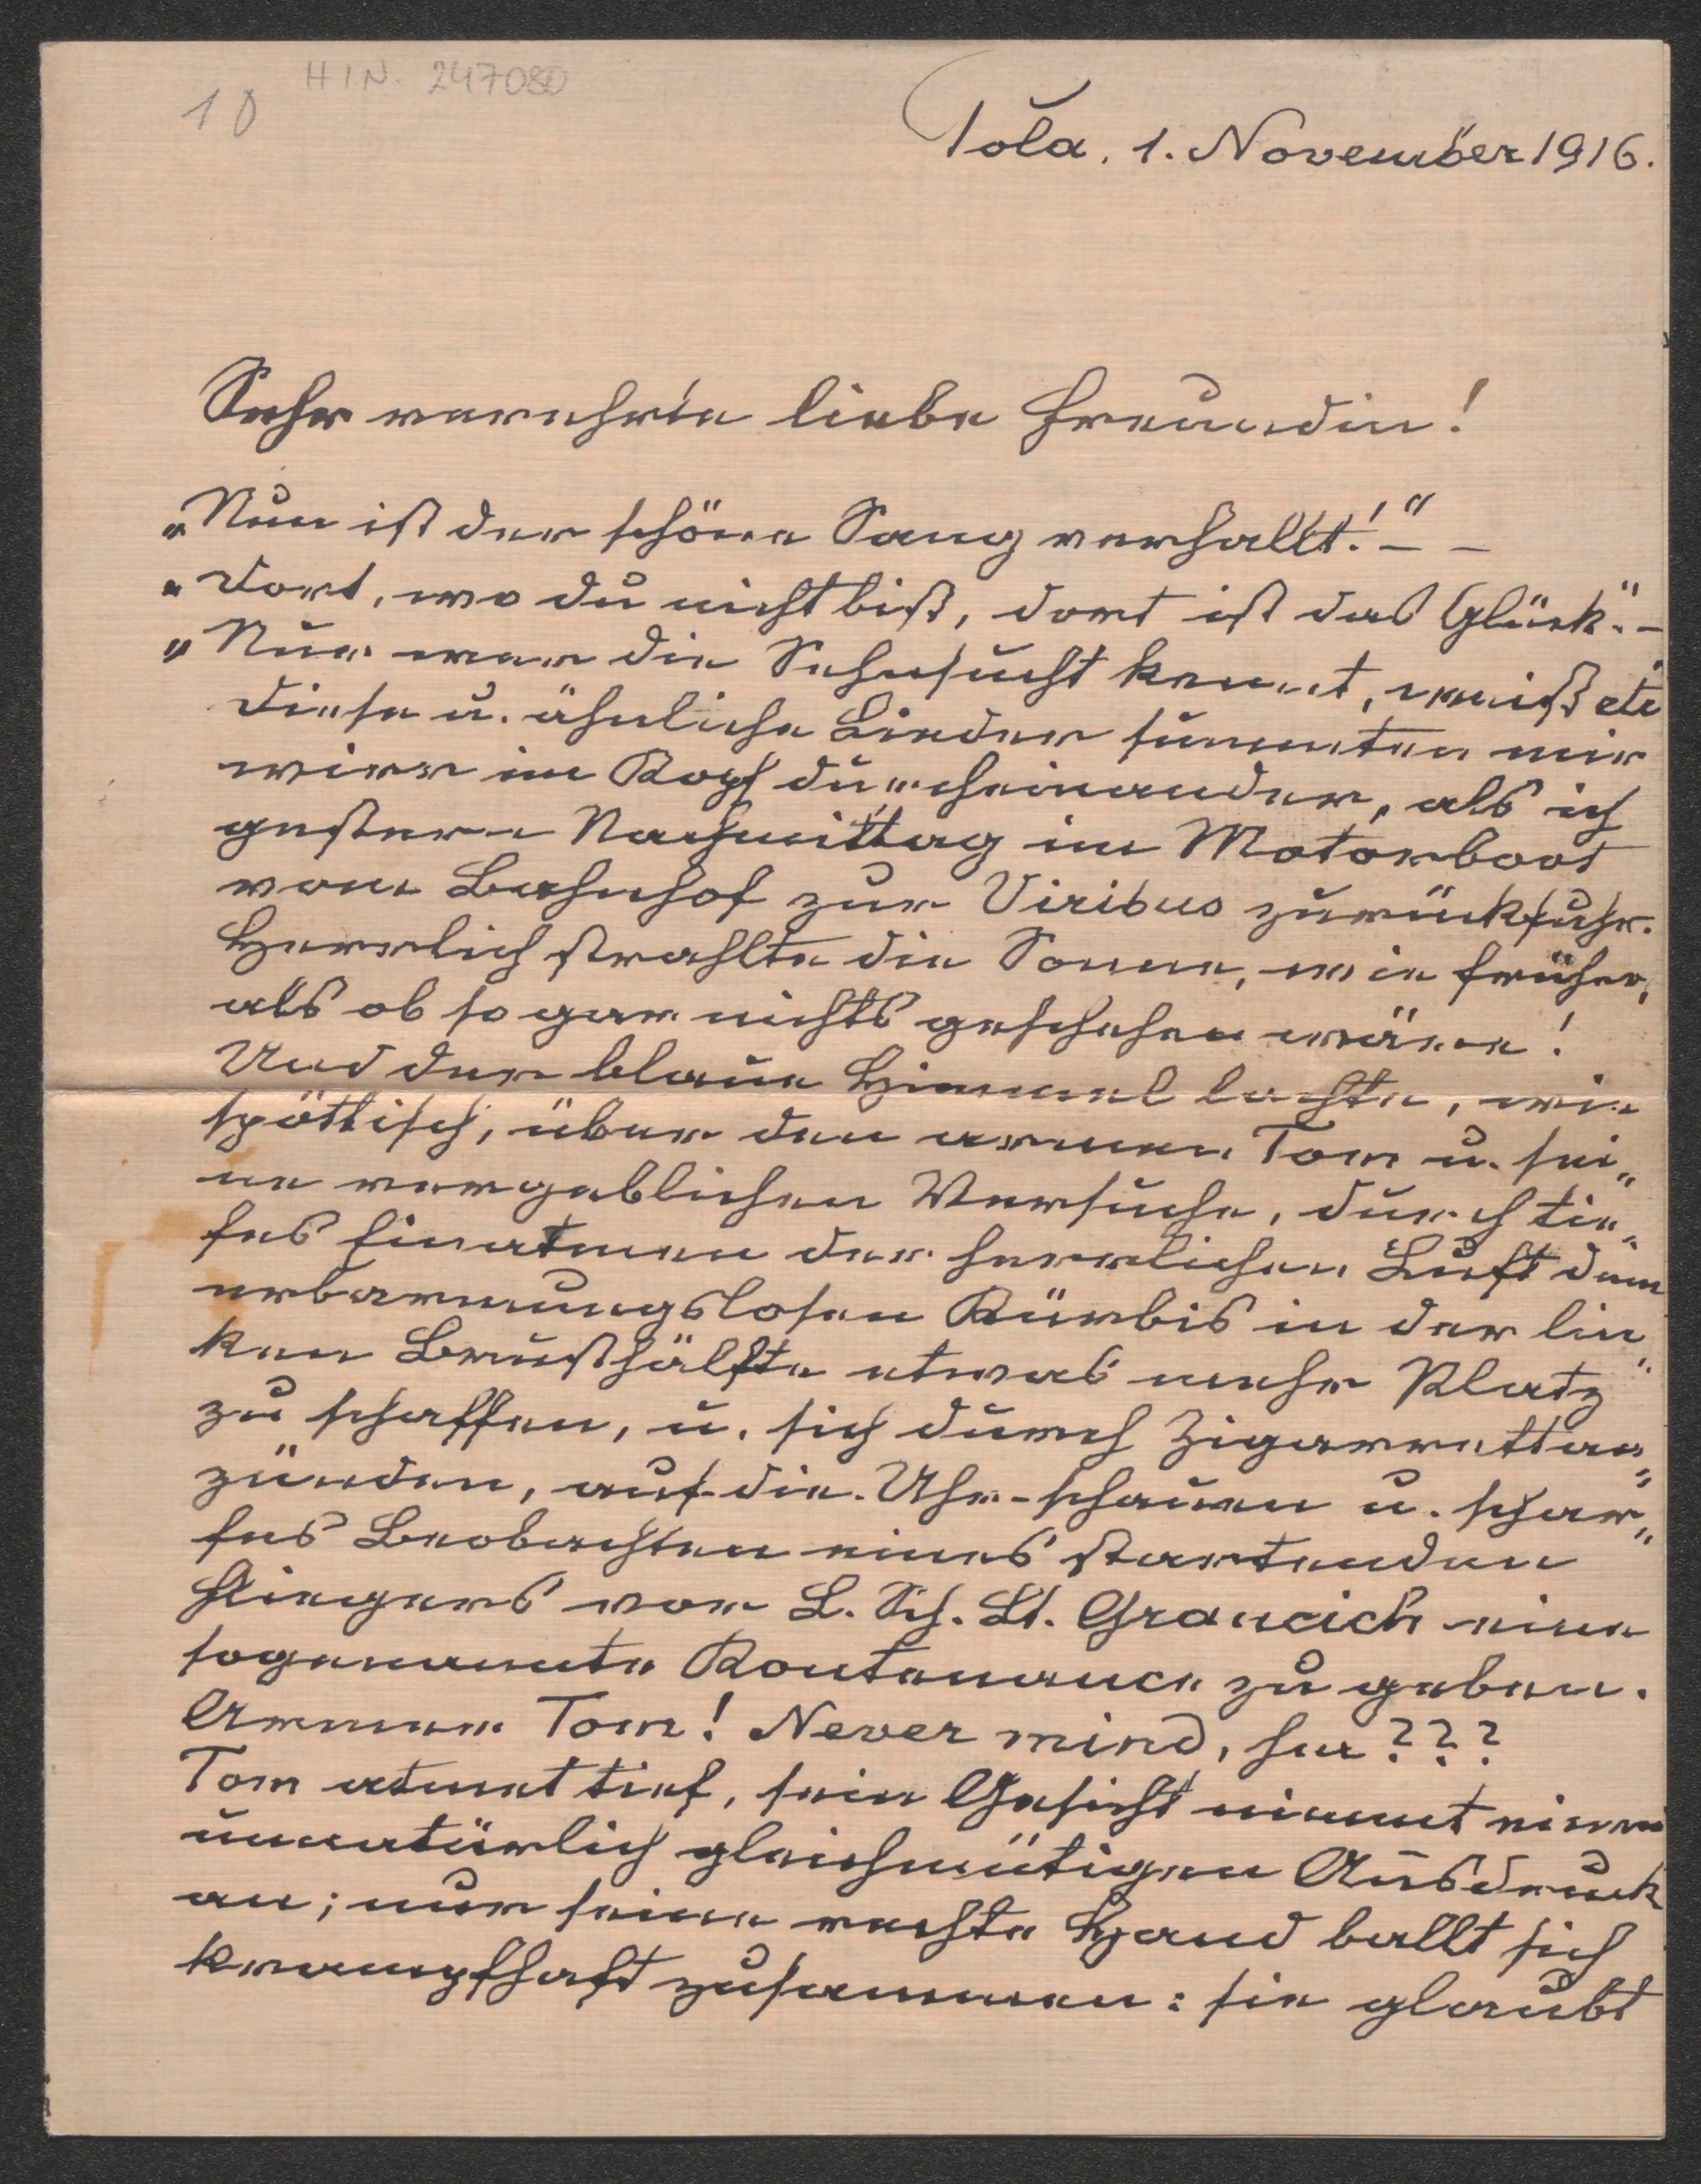 10 H.I.N. 247080
Pola, 1. November 1916.
Sehr verehrte liebe Freundin!
„Nun ist der schöne Sang verhallt!“ – –
„Dort, wo du nicht bist, dort ist das Glück“. –
„Nur wer die Sehnsucht kennt, weiß etc“
Diese u. ähnliche Lieder summten mir
wirr im Kopf durcheinander, als ich
gestern Nachmittag im Motorboot
vom Bahnhof zur Viribus zurückfuhr.
Herrlich strahlte die Sonne, wie früher,
als ob so gar nichts geschehen wäre!
Und der blaue Himmel lachte, wie
spöttisch, über den armen Tom u. sei„
ne vergeblichen Versuche, durch tie„
fes Einatmen der herrlichen Luft dem
erbarmungslosen Kürbis in der lin„
ken Brusthälfte etwas mehr Platz
zu schaffen, u. sich durch Zigarrettan„
zünden, auf-die-Uhr-schauen u. schar„
fes Beobachten eines startenden
Fliegers vor L. Sch. Lt. Grancich eine
sogenannte Kontenance zu geben.
Armer Tom! Never mind, he???
Tom atmet tief, sein Gesicht nimmt einen
unnatürlich gleichmütigen Ausdruck
an; nur seine rechte Hand ballt sich
krampfhaft zusammen: sie glaubt